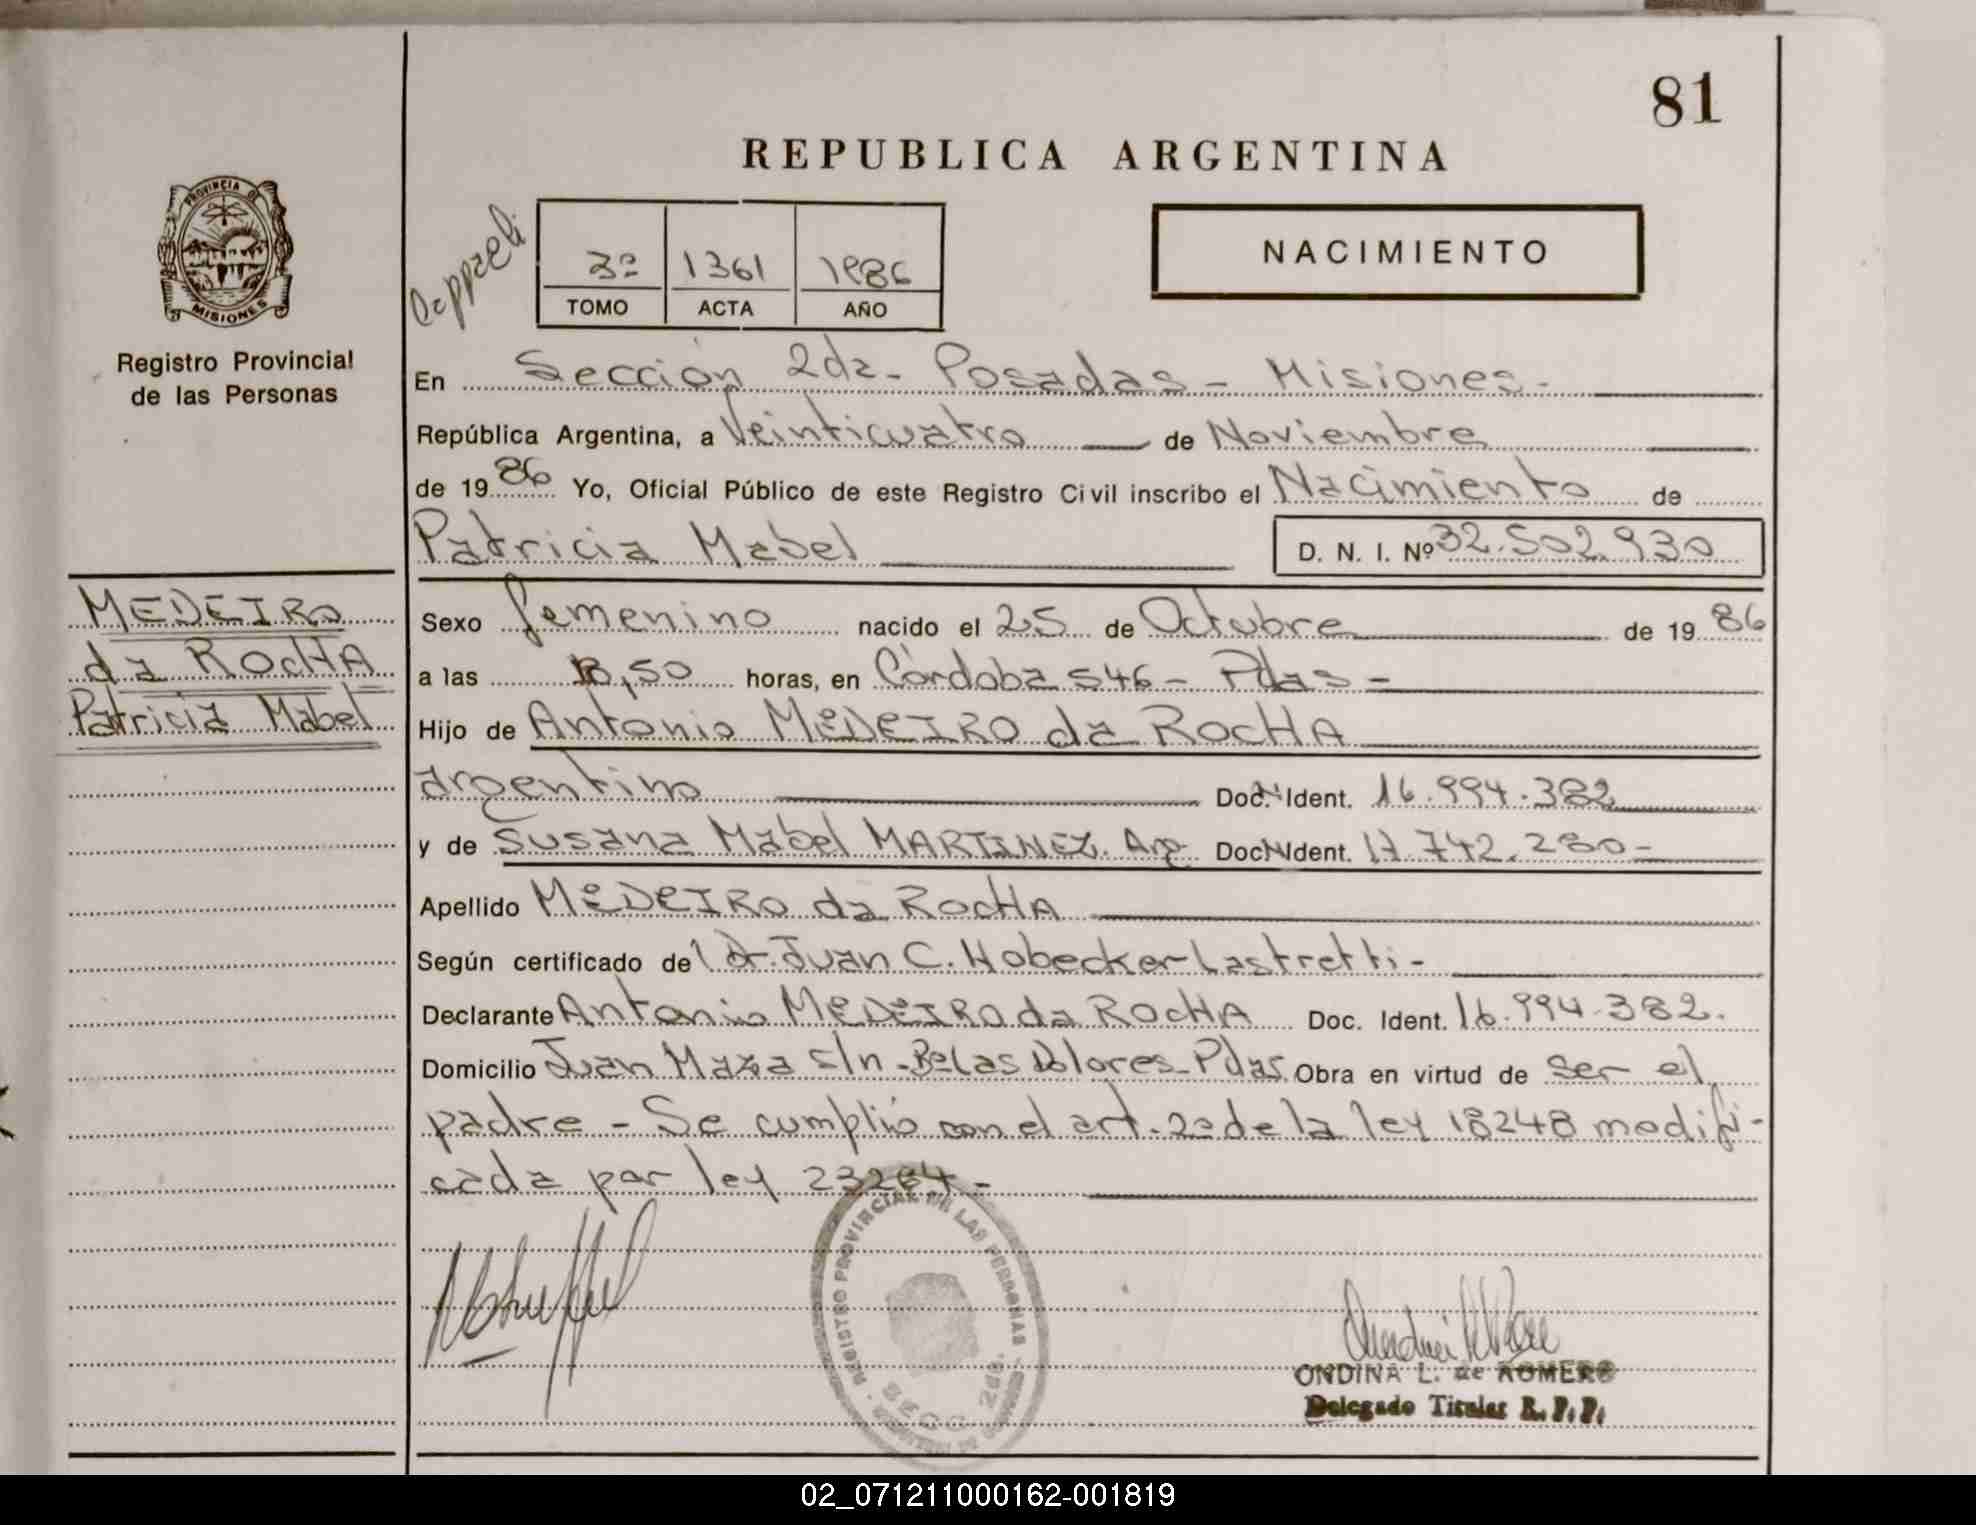 81
REPUBLICA ARGENTINA
PROVINCIA DE
MISIONES
Registro Provincial
de las Personas
3º 1361 1986
TOMO ACTA AÑO
NACIMIENTO
En Sección 2da- Posadas - Misiones-
República Argentina, a Veinticuatro de Noviembre
de 1986 Yo, Oficial Público de este Registro Civil inscribo el Nacimiento de
Patricia Mabel D. N. I. Nº 32.502.930
MEDEIRO
da ROCHA
Patricia Mabel
Sexo femenino nacido el 25 de Octubre de 1986
a las horas, en Córdoba 546 - Pdas -
Hijo de Antonio MEDEIRO da ROCHA
argentino Doc. Ident. 16.994.382
y de Susana Mabel MARTINEZ. Arg. Doc. Ident. 17.742.280-
Apellido MEDEIRO da ROCHA
Según certificado del Dr. Juan C. Hobecker Lastretti -
Declarante Antonio MEDEIRO da ROCHA Doc. Ident. 16.994.382.
Domicilio Juan Maza s/n - Bº Las Dolores - Pdas. Obra en virtud de ser el
padre - Se cumplió con el art. 2º de la ley 18248 modifi-
cada por ley 23264 -
REGISTRO PROVINCIAL DE LAS PERSONAS
SECC. 2da.
ONDINA L. de ROMERO
Delegado Titular R. P. P.
02_071211000162-001819